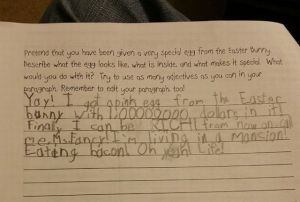 Pretend that you have been given a very special egg from the Easter Bunny.
Describe what the egg looks like, what is inside, and what makes it special. What
would you do with it? Try to use as many adjectives as you can in your
paragraph. Remember to edit your paragraph, too!
Yay! I got a pink egg from the Easter
bunny with 1,000000,000, dollars in it!
Finally I can be RICH!! from now on call
me Ms. Fancy! I'm living in a mansion!
Eating bacon! Oh yeah! Life!